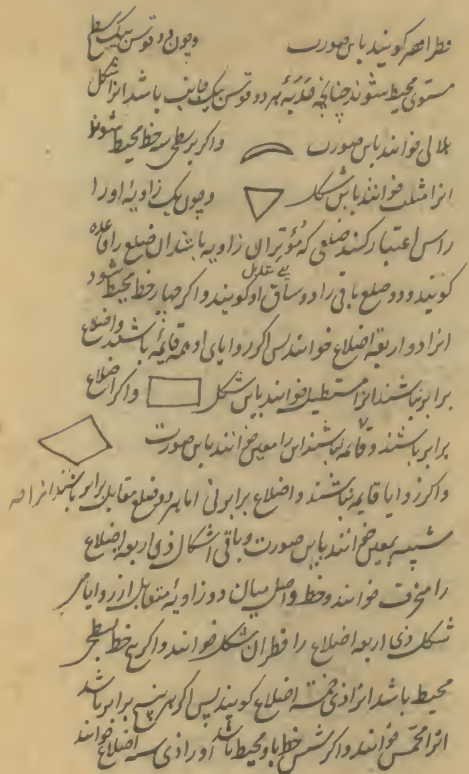 قطر اصغر گویند باین صورت وچون دو قوس بیک سطح
مستوی محیط شوند چنانچه حدبهٔ هر دو قوس بیک جانب باشد آنرا شکل
هلالی خوانند باین صورت واکر بر سطحی سه خط محیط شوند
آنرا مثلث خوانند باین شکل وچون یک زاویهٔ او را
راس اعتبار کنند ضلعی که مؤتر آن زاویه باشد آن ضلع را قاعده
کویند ودو ضلع باقی را دو ساق او کویند واکر چهار خط محیط شود
آنرا ذو اربعة اضلاع خوانند پس اکر زوایای او همه قایمه باشند واضلاع
برابر نباشند آنرا مستطیل خوانند باین شکل واکر اضلاع
برابر باشند وقایمه نباشند این را معین خوانند باین صورت
واکر زوایا قایمه نباشند واضلاع برابر نی اما هر دو ضلع مقابل برابر باشند آنرا
شبیه بمعین خوانند باین صورت وباقی اشکال ذی اربعة اضلاع
را منحرف خوانند وخط واصل میان دو زاویهٔ متقابل از زوایای
شکل ذی اربعة اضلاع را قطر آن شکل خوانند واکر پنج خط بسطحی
محیط باشد آنرا ذی خمسة اضلاع کویند پس اکر هر پنج برابر باشد
آنرا مخمس خوانند واکر شش خط باو محیط باشد او را ذی ستة اضلاع خوانند